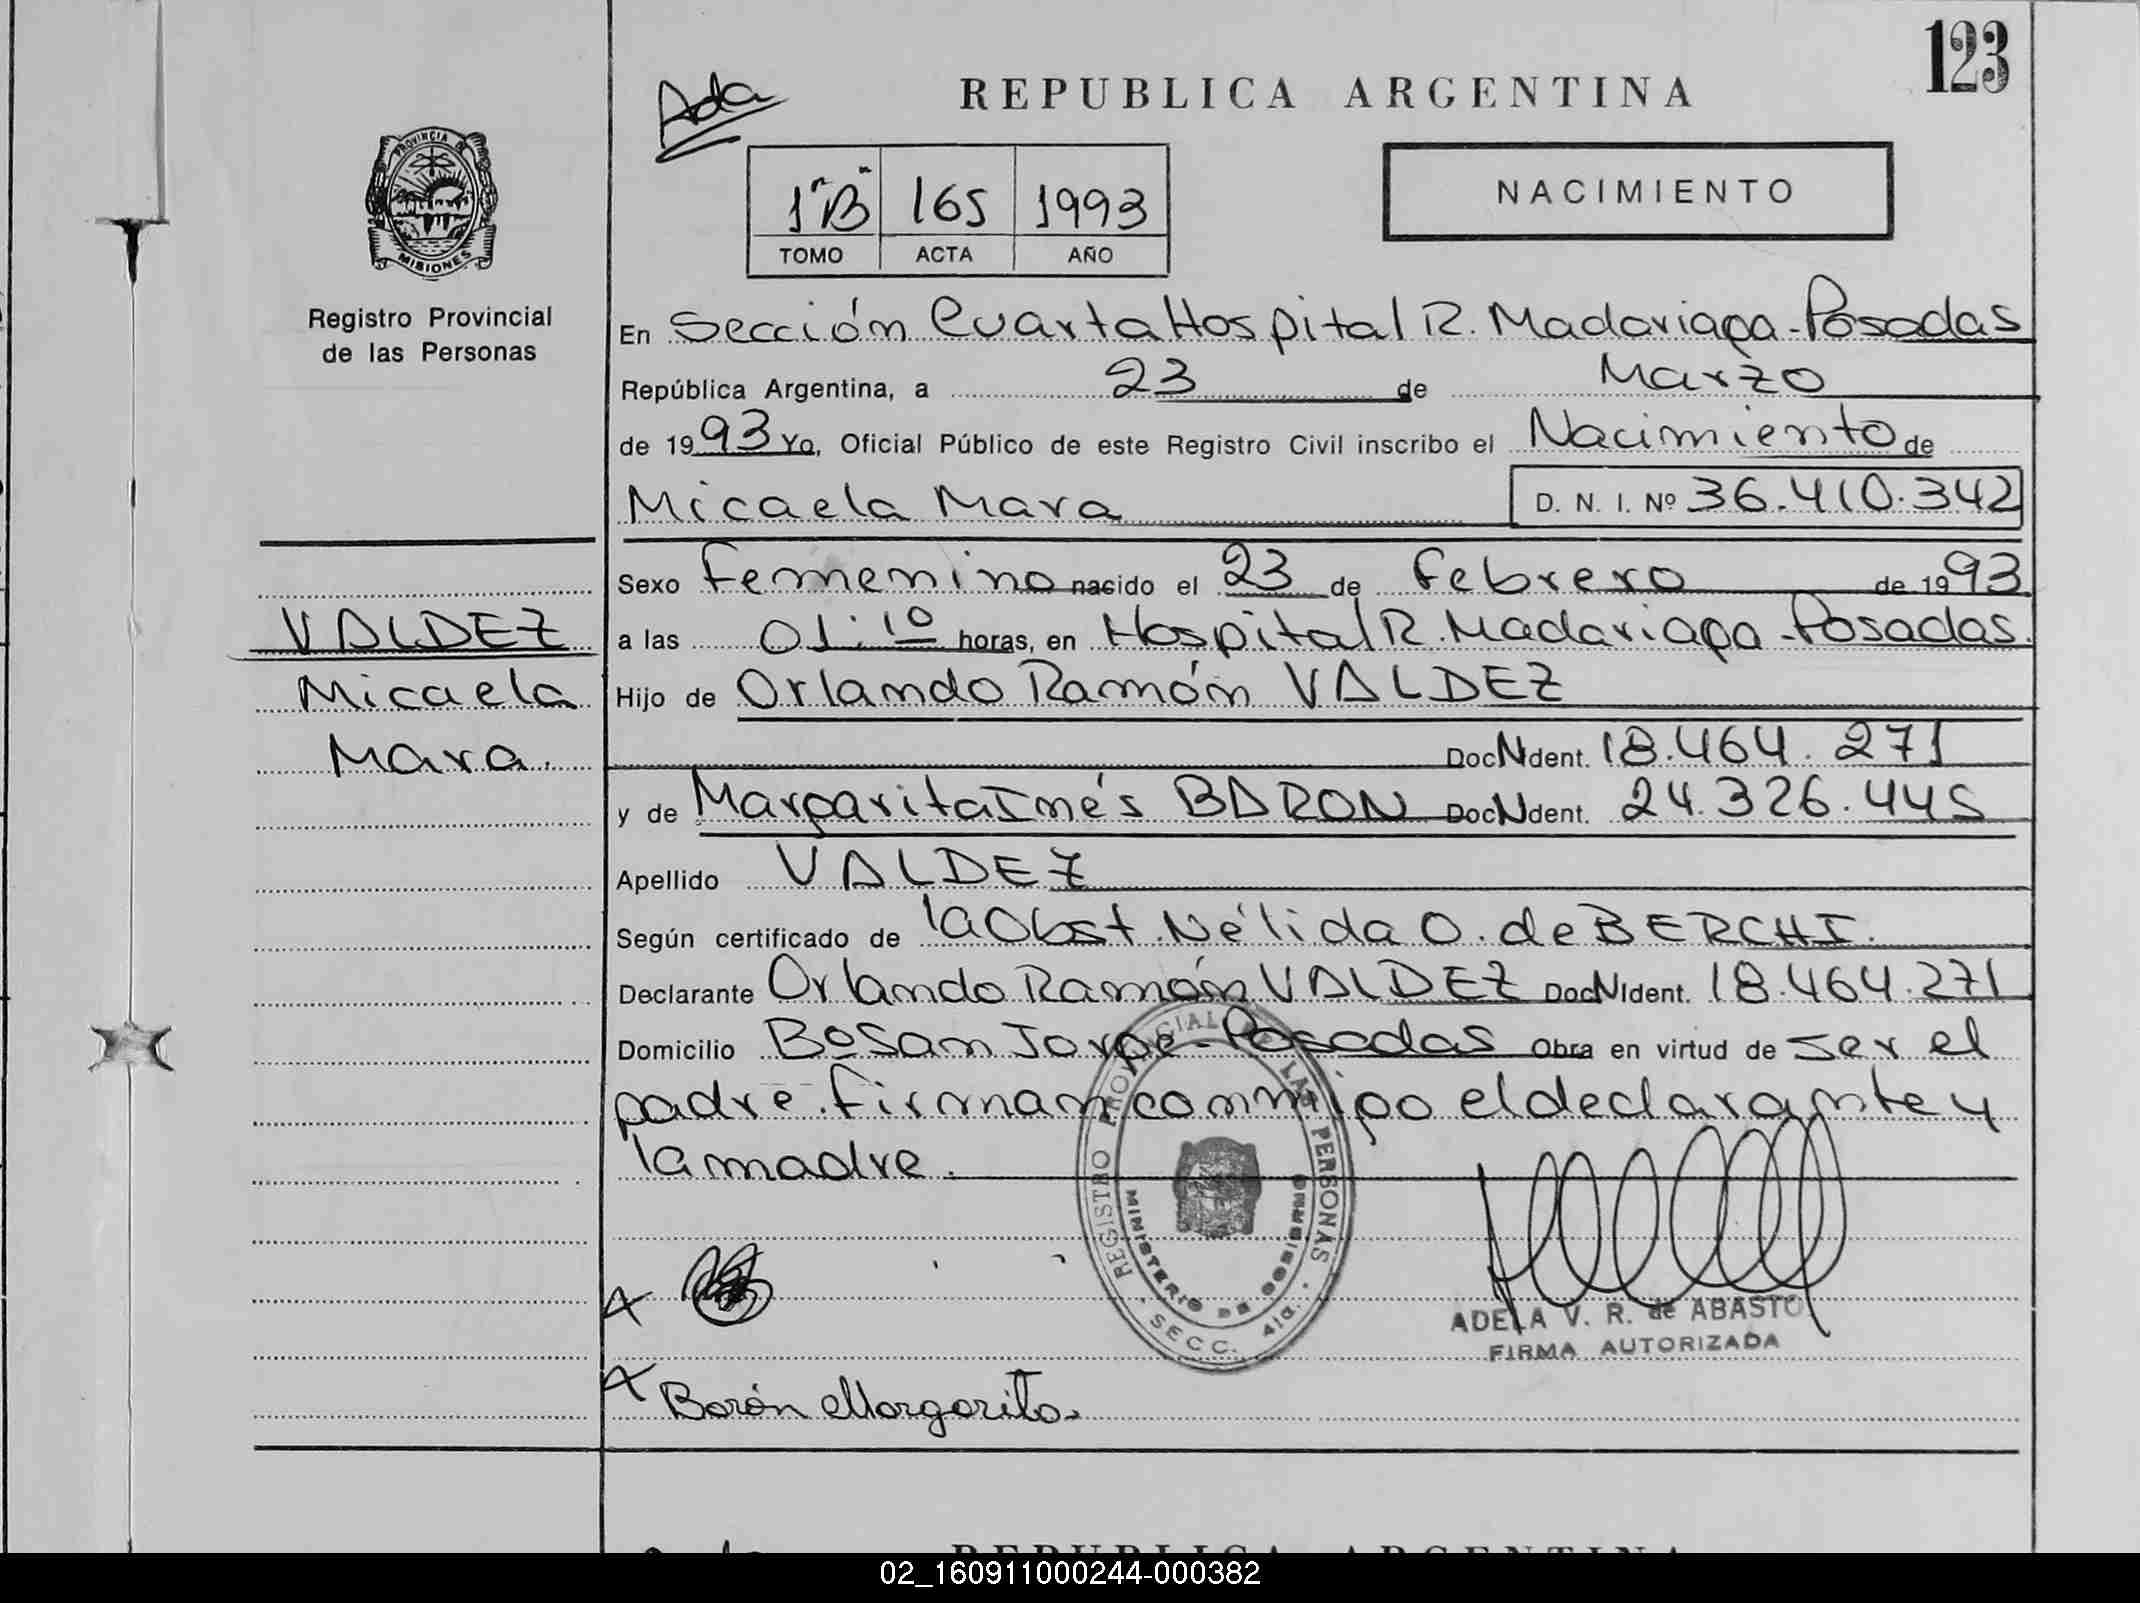 123
Ada
REPUBLICA ARGENTINA
PROVINCIA
MISIONES
Registro Provincial
de las Personas
1º"B" 165 1993
TOMO ACTA AÑO
NACIMIENTO
En Sección Cuarta Hospital R. Madariaga - Posadas
República Argentina, a 23 de Marzo
de 1993 Yo, Oficial Público de este Registro Civil inscribo el Nacimiento de
Micaela Mara D. N. I. Nº 36.410.342
VALDEZ
Micaela
Mara.
Sexo Femenino nacido el 23 de Febrero de 1993
a las 01:10 horas, en Hospital R. Madariaga - Posadas.
Hijo de Orlando Ramón VALDEZ
Doc N Ident. 18.464.271
y de Margarita Inés BARON Doc N Ident. 24.326.445
Apellido VALDEZ
Según certificado de la Obst. Nélida O. de BERCHI.
Declarante Orlando Ramón VALDEZ Doc N Ident. 18.464.271
Domicilio Bº San Jorge - Posadas Obra en virtud de ser el
padre. Firman conmigo el declarante y
la madre.
REGISTRO PROVINCIAL DE LAS PERSONAS
MINISTERIO DE GOBIERNO
SECC. 4ta.
ADELA V. R. de ABASTO
FIRMA AUTORIZADA
Barón Margarita
REPUBLICA ARGENTINA
02_160911000244-000382